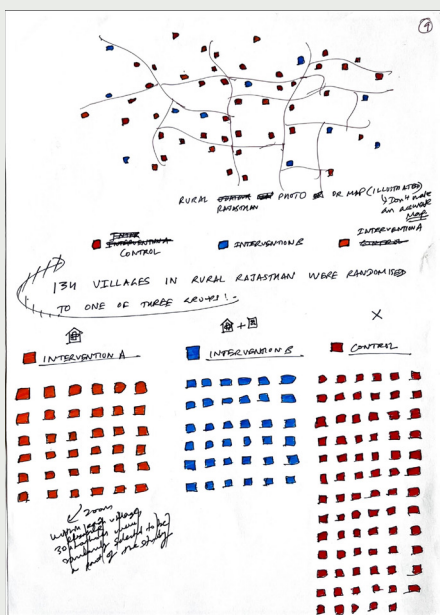 4
RURAL RAJASTHAN PHOTO OR MAP (ILLUSTRATED)
Don't make
an accurate
Map
CONTROL
INTERVENTION B
INTERVENTION A
134 VILLAGES IN RURAL RAJASTHAN WERE RANDOMISED
TO ONE OF THREE GROUPS:
+
X
INTERVENTION A
INTERVENTION B
CONTROL
zoom
within each village
30 families were
randomly selected to be
a part of the study